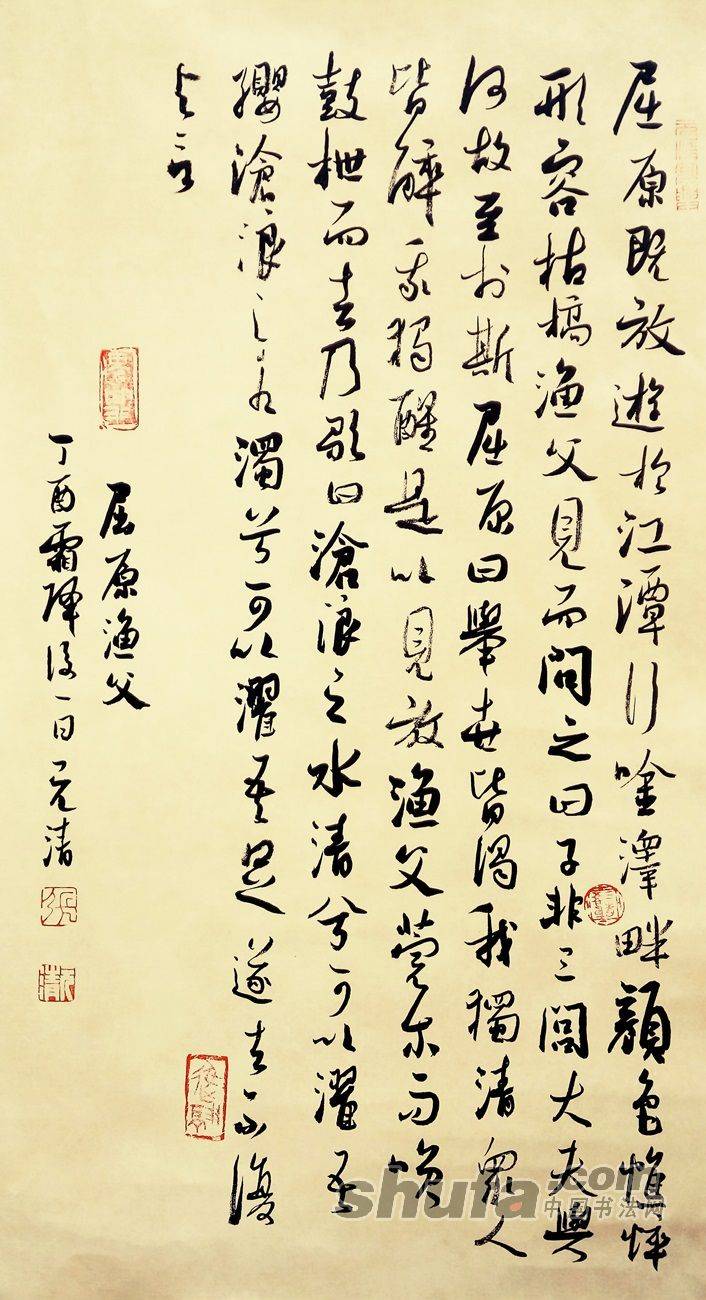 屈原既放遊於江潭行唫澤畔顏色憔悴
形容枯槁漁父見而問之曰子非三閭大夫與
何故至於斯屈原曰舉世皆濁我獨清眾人
皆醉我獨醒是以見放漁父莞尔而笑
鼓枻而去乃歌曰滄浪之水清兮可以濯吾
纓滄浪之水濁兮可以濯吾足遂去不復
与言
屈原漁父
丁酉霜降後一日元清
shufa.com
中国书法网